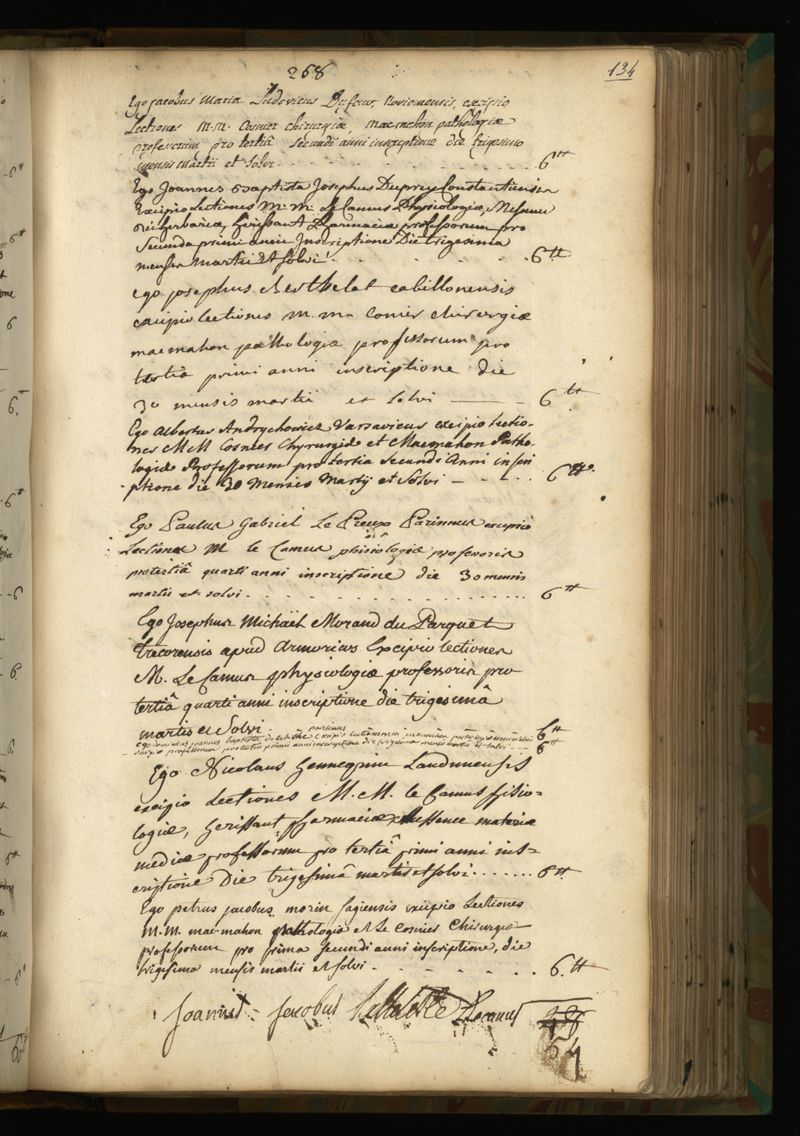 268
134
Ego jacobus Maria Ludovicus Dufour, Noviomensis, excipio
Lectiones M.M. Cosnier chirurgiæ, macmahon pathologiæ
professorum pro tertiâ secundi anni inscriptione die trigesimo
mensis Martii et solvi . . . . . . . . 6tt
Ego Joannes Baptista Josephus Duprey Constantiensis
Excipio Lectiones M. M. Le Camus Physiologiæ,
rei herbariæ, herissant Pharmaciæ professorum pro
secunda primi anni Inscriptione Die trigesima
mensis martii Et solvi . . . . . . 6tt
ego josephus Berthelot cabillonensis
excipio lectiones m. m. cosnier chirurgiæ
macmahon pathologiæ professorum pro
tertiâ primi anni inscriptione die
30 mensis martii et solvi — 6tt
Ego Albertus Andrychowicz Varsavicus excipio lectio-
nes M M Cosnier Chyrurgiæ et Macmahon Patho-
logiæ Professorum pro tertia secundi Anni inscri
ptione die 30 Mensis Martij et solvi — . . . 6tt
Ego Paulus Gabriel Le Preux Parisinus excipio
Lectiones M le Camus phisiologiæ professoris
pro tertiâ quarti anni inscriptione die 30 mensis
martis et solvi . . . . . . . . . . 6tt
Ego Josephus Michaël Morand du Parquet
trecorensis apud Armoricos Excipio lectiones
M. Le Camus physiologiæ professoris pro
tertiâ quarti anni inscriptione die trigesimâ
martis et Solvi . 6tt
parisinus
ego joannes baptista excipio lectiones macmahon pathologiæ
professorum pro tertia primi anni inscriptione die trigesima mensis martii et solvi . . . 6tt
Ego Nicolaus hennequin Laudunensis
excipio Lectiones M. M. le Camus fisio-
logiæ, herissant pharmaciæ materiæ
medicæ professorum pro tertiâ primi anni ins=
criptione Die trigesimâ martis et solvi . . . . . . 6tt
Ego petrus jacobus morin sagiensis excipio Lectiones
M.M. mac-mahon pathologiæ et Le cosnier Chirurgiæ
professorum pro prima secundi anni inscriptione, die
trigesima mensis martii et solvi . - - - - 6.tt
Joannes - Jacobus Belleteste Decanus 48
54